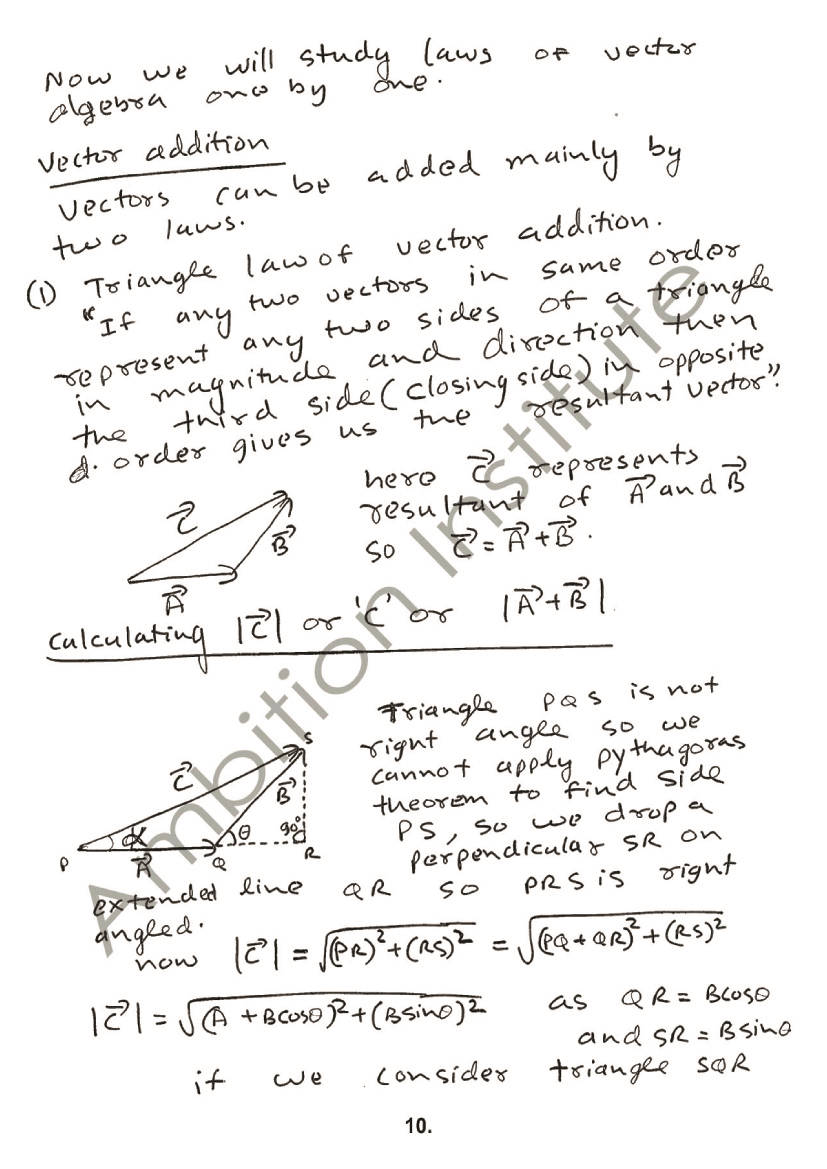 Now we will study laws of vector
algebra one by one.
Vector addition
Vectors can be added mainly by
two laws.
(1) Triangle law of vector addition.
"If any two vectors in same order
represent any two sides of a triangle
in magnitude and direction then
the third side (closing side) in opposite
order gives us the resultant vector".
here C⃗ represents
resultant of A⃗ and B⃗
so C⃗ = A⃗ + B⃗.
C⃗
B⃗
A⃗
Calculating |C⃗| or 'C' or |A⃗+B⃗|.
Triangle PQS is not
right angle so we
cannot apply pythagoras
theorem to find side
PS, so we drop a
perpendicular SR on
S
C⃗
B⃗
α
θ
90°
P
A⃗
Q
R
extended line QR so PRS is right
angled.
now |C⃗| = √(PR)²+(RS)² = √(PQ+QR)²+(RS)²
|C⃗| = √(A + Bcosθ)²+(Bsinθ)² as QR = Bcosθ
and SR = Bsinθ
if we consider triangle SQR
10.
Ambition Institute